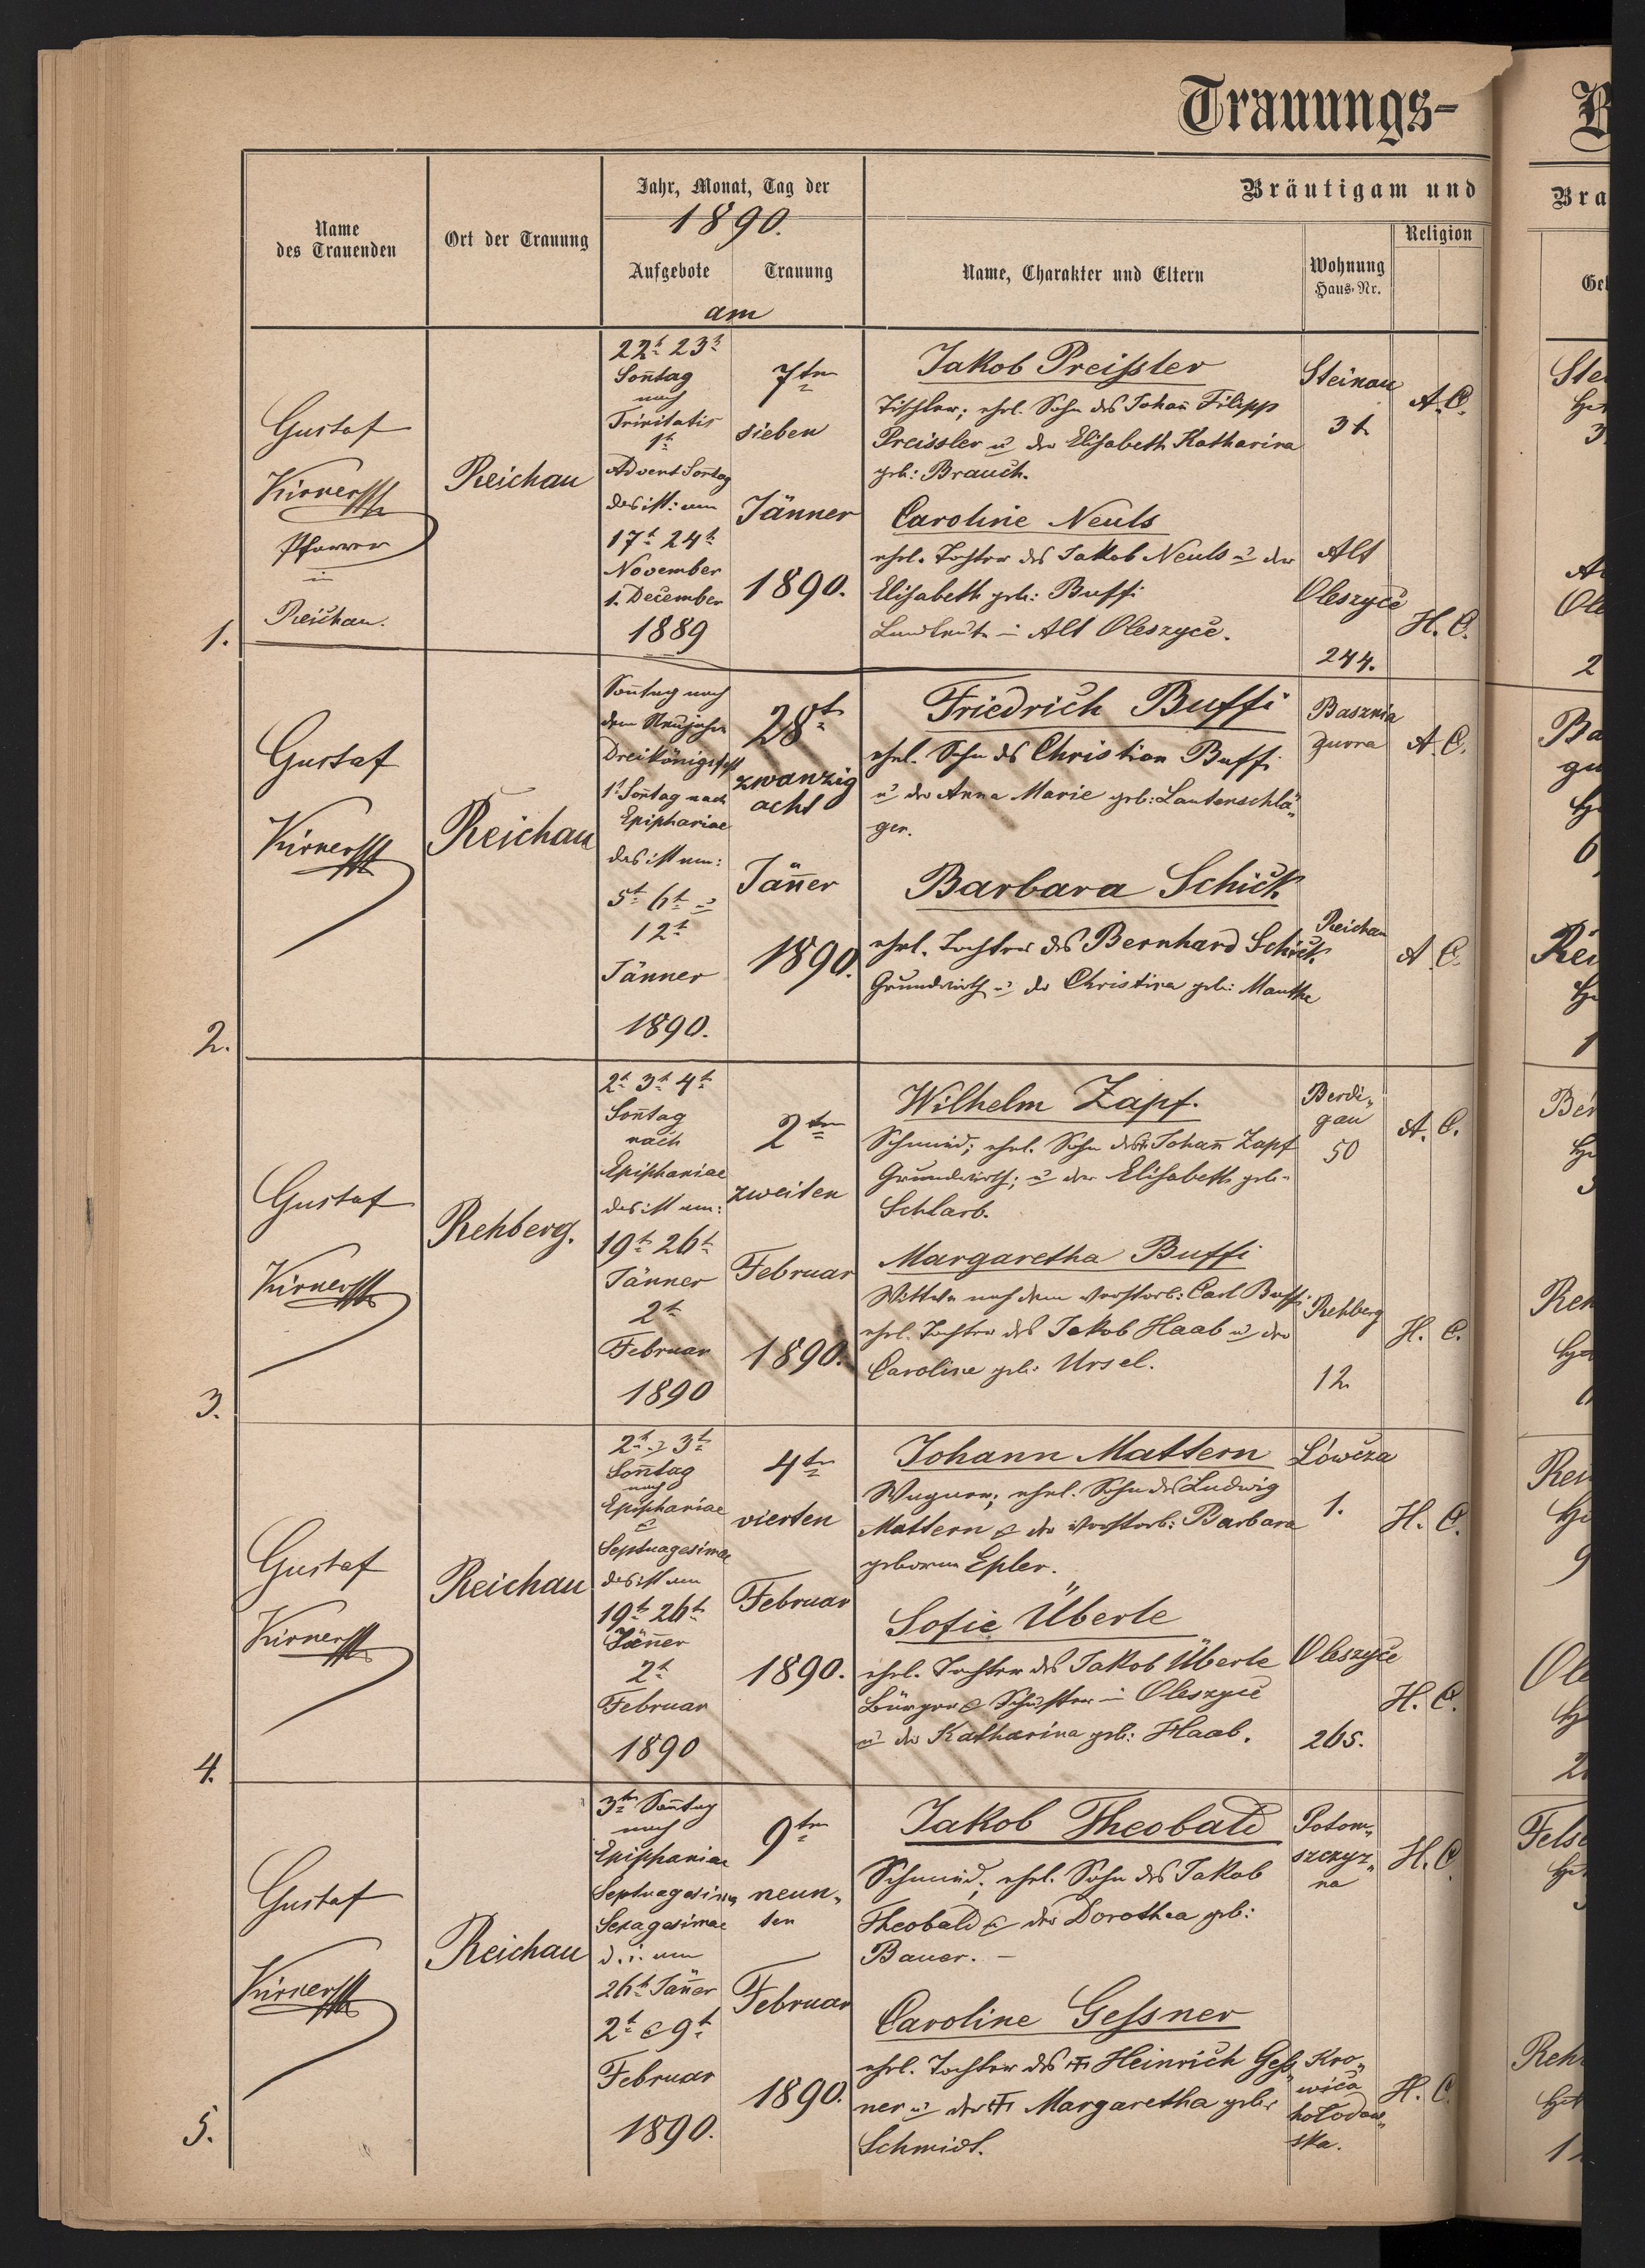 Trauungs-
Name
des Trauenden
Ort der Trauung
Jahr, Monat, Tag der
1890.
Aufgebote
Trauung
am
Bräutigam und
Name, Charakter und Eltern
Wohnung
Haus-Nr.
Religion
1.
Gustaf
Kirner
Pfarrer
in
Reichau.
Reichau
22t. 23t.
Sontag
nach
Trinitatis
1t.
Advent Sontag
das ist: am
17t. 24t.
November
1. December
1889
7ten
sieben
Jänner
1890.
Jakob Preissler
Tischler; ehel. Sohn des Johan Filipp
Preissler u der Elisabeth Katharina
geb: Brauch.
Caroline Neuls
ehel. Tochter des Jakob Neuls u der
Elisabeth geb: Buffi
Landleute in Alt Oleszyce.
Steinau
31.
A. C.
Alt
Oleszyce
244.
H. C.
2.
Gustaf
Kirner
Reichau
Sontag nach
dem Neujahr
Dreikönigsfest
1t. Sontag nach
Epiphaniae
das ist am:
5t. 6t. u
12t.
Jänner
1890.
28t.
zwanzig
acht
Jäner
1890.
Friedrich Buffi
ehel. Sohn des Christian Buffi
u der Anna Marie geb: Lautenschlä„
ger.
Barbara Schick
ehel. Tochter des Bernhard Schick
Grundwirth u der Christina geb: Manthe
Basznia
gurra
A. C.
Reichau
A. C.
3.
Gustaf
Kirner
Rehberg.
2t. 3t. 4t.
Sontag
nach
Epiphaniae
das ist am:
19t. 26t.
Jänner
2t.
Februar
1890
2ten
zweiten
Februar
1890.
Wilhelm Zapf.
Schmied; ehel. Sohn des Johan Zapf
Grundwirth; u der Elisabeth geb.
Schlarb.
Margaretha Buffi
Wittwe nach dem verstorb: Carl Buffi
ehel. Tochter des Jakob Haab u der
Caroline geb: Ursel.
Berdi„
gau
50
A. C.
Rehberg
12
H. C.
4.
Gustaf
Kirner
Reichau
2t. u 3t.
Sontag
nach
Epiphaniae
&
Septuagesimae
das ist am
19t. 26t.
Jäner
2t.
Februar
1890
4ten
vierten
Februar
1890.
Johann Mattern
Wagner; ehel. Sohn des Ludwig
Mattern & der verstorb: Barbara
geboren Epler.
Sofie Überle
ehel. Tochter des Jakob Überle
Bürger & Schuster in Oleszyce
u der Katharina geb: Haab.
Łówcza
1.
H. C.
Oleszyce
265.
H. C.
5.
Gustaf
Kirner
Reichau
3ten Sontag
nach
Epiphaniae
Septuagesima
Sexagesimae
d. i. am
26t. Jäner
2t. & 9t.
Februar
1890.
9ten
neun„
ten
Februar
1890.
Jakob Theobald
Schmied; ehel. Sohn des Jakob
Theobald & der Dorothea geb:
Bauer. –
Caroline Gessner
ehel. Tochter des Heinrich Gess„
ner u der Margaretha geb:
Schmidt.
Potom„
szczyz„
na
H. C.
Kro„
wica
hołodow„
ska.
H. C.